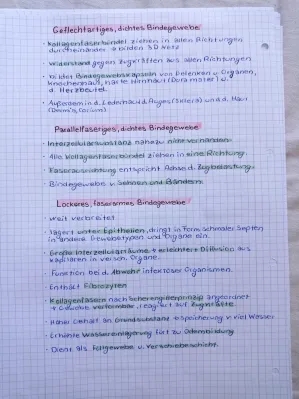 Geflechtartiges, dichtes Bindegewebe
- Kollagenfaserbündel ziehen in allen Richtungen
durcheinander & bilden 3D Netz
- Widerstand gegen Zugkräften aus allen Richtungen
- bildet Bindegewebskapseln von Gelenken u. Organen,
Knochenhaut, harte Hirnhaut (Dura mater) u.
d. Herzbeutel
- Außerdem in d. Lederhaut d. Auges (Sclera) und d. Haut
(Dermis, Corium)
Parallelfaseriges, dichtes Bindegewebe
- Interzellularsubstanz nahezu nicht vorhanden
- Alle Kollagenfaserbündel ziehen in eine Richtung
- Faseranordnung entspricht Achse d. Zugbelastung
- Bindegewebe v. Sehnen und Bändern
Lockeres, faserarmes Bindegewebe
- weit verbreitet
- lagert unter Epithelien, dringt in Form schmaler Septen
in andere Gewebetypen und Organe ein
- Große Interzellularräume → erleichtert Diffusion aus
Kapillaren in versch. Organe
- Funktion bei d. Abwehr infektiöser Organismen
- Enthält Fibrozyten
- Kollagenfasern nach Scherengitterprinzip angeordnet
→ Gewebe verformbar, reagiert auf Zugkräfte
- Hoher Gehalt an Grundsubstanz → Speicherung v. viel Wasser
- Erhöhte Wassereinlagerung führt zu Ödembildung
- Dient als Füllgewebe u. Verschiebeschicht